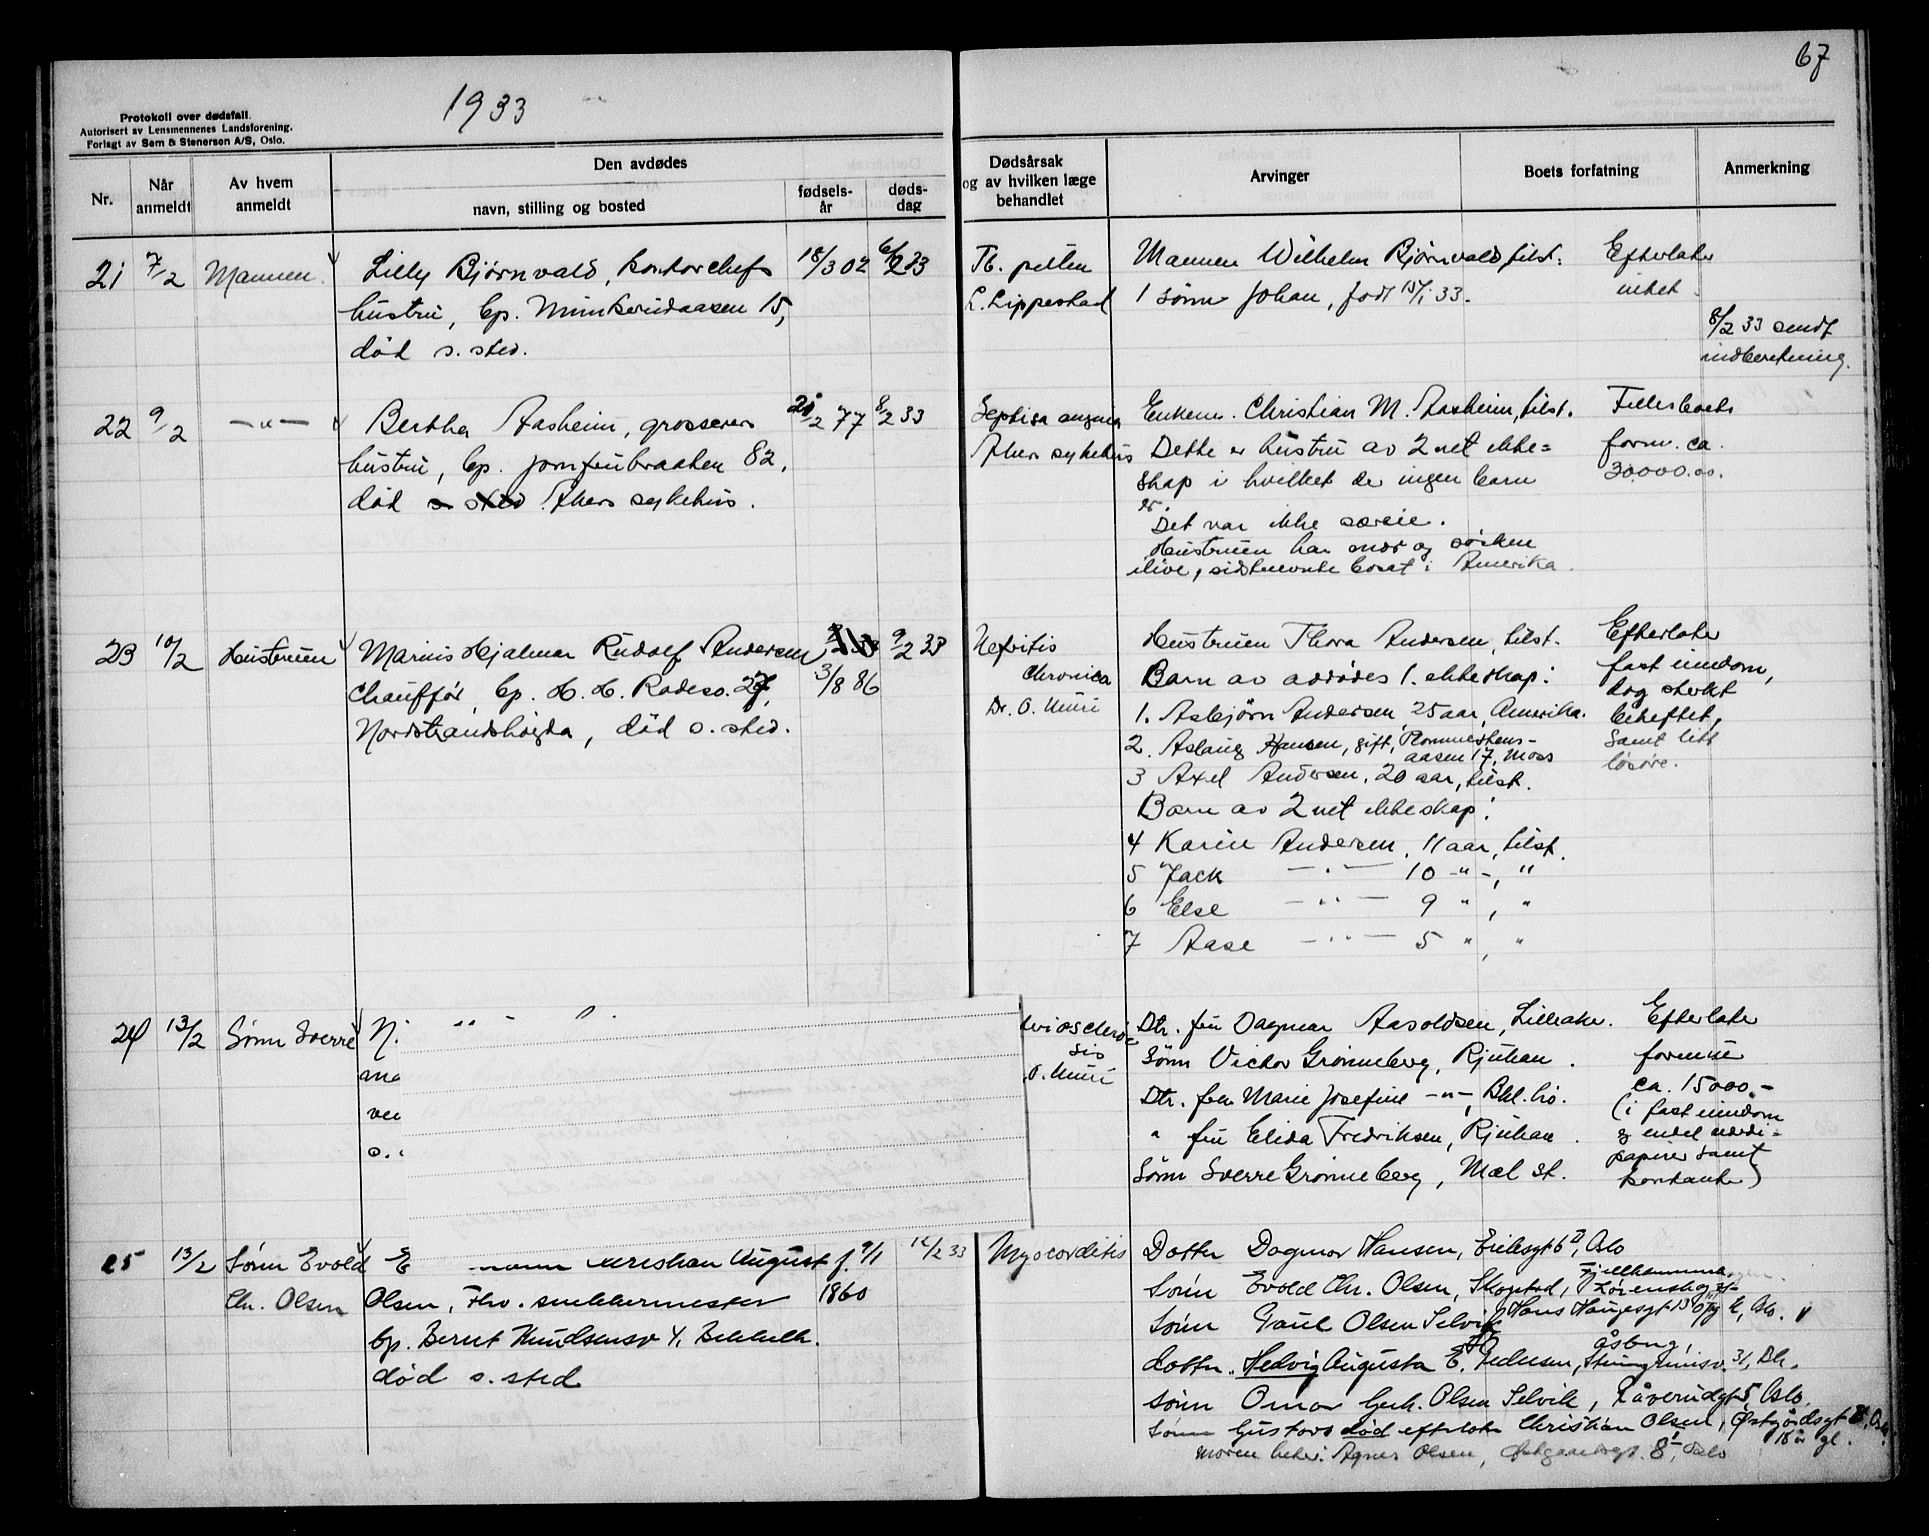 67
1933
Protokoll over dødsfall.
Autorisert av Lensmennenes Landsforening.
Forlagt av Sem & Stenersen A/S, Oslo.
Nr.
Når anmeldt
Av hvem anmeldt
Den avdødes
navn, stilling og bosted
fødsels-år
døds-dag
Dødsårsak og av hvilken læge behandlet
Arvinger
Boets forfatning
Anmerkning
21 7/2 Mannen. Lilly Bjørnvald, kontorchefs 18/3 02 6/2 33
hustru, bp. Munkerudaasen 15,
død s. sted.
Tb. pulm
L. Lippestad
Mannen Wilhelm Bjørnvald, tilst.
1 sønn Johan, født 15/1 33.
Efterlater
intet
8/2 33 sendt
indberetning.
22 9/2 —"— Bertha Aasheim, grosserer 21/2 77 8/2 33
hustru, bp. Jomfrubraaten 82,
død s. sted Akers sykehus.
Septisa angina
Akers sykehus
Enkem. Christian M. Aasheim, tilst.
Dette er hustru av 2net ekte=
skap i hvilket der ingen barn
er.
Det var ikke særeie.
Hustruen har mor og søsken
ilive, sidstnevnte bosat i Amerika.
Fellesboets
form. ca.
30.000.00.
23 10/2 Hustruen Marius Hjalmar Rudolf Andersen 3/8 86 9/2 33
Chauffør, bp. H. H. Radesv. 27,
Nordstrandshøgda, død s. sted.
Nefritis
Chronica
Dr. O. Muri
Hustruen Thora Andersen, tilst.
Barn av avdødes 1. ekteskap:
1. Asbjørn Andersen, 25 aar, Amerika.
2. Aslaug Hansen, gift, Plommestens-
aasen 17, Moss
3 Axel Andersen, 20 aar, tilst.
Barn av 2net ekteskap:
4 Karin Andersen, 11 aar, tilst.
5 Jack —"— 10 -"-, "
6 Else —"— 9 ", "
7 Aase —"— 5 ", "
Efterlater
fast eiendom,
dog sterkt
beheftet,
samt litt
løsøre.
24 13/2 Sønn Sverre N.
ma
ver
s.
sis
O. Muri
Dtr. fru Dagmar Aasoldsen, Lilleaker.
Sønn Victor Grønneberg, Rjukan.
Dtr. frk Marie Josefine —"—, Bkl.hø.
" fru Elida Fredriksen, Rjukan.
Sønn Sverre Grønneberg, Mæl st.
Efterlater
formue
ca. 15000.-
(i fast eiendom
og endel verdi=
papirer samt
kontanter)
25 13/2 Sønn Evold E Kristian August f. 9/1 12/2 33
Chr. Olsen Olsen, Fhv. snekkermester 1860
bp. Bernt Knudsensv 4, Bekkelh.
død s. sted
Myocorditis
Datter Dagmar Hansen, Eriksgt 6 II, Oslo
Fjellhammer
Sønn Evold Chr. Olsen, Skogstad, Lørenskog st-
Sønn Paul Olsen Selvik Hans Haugesgt 13 Oslo.
datter. Hedvig Augusta E. Pedersen, 31,
sønn Omar Gerh. Olsen Selvik, Oslo
Sønn Gustavs død efterlate Christian Olsen, Østgårdsgt 8, Oslo.
18 år gl.
moren heter: Agnes Olsen, Østgaardsgt. 8, Oslo